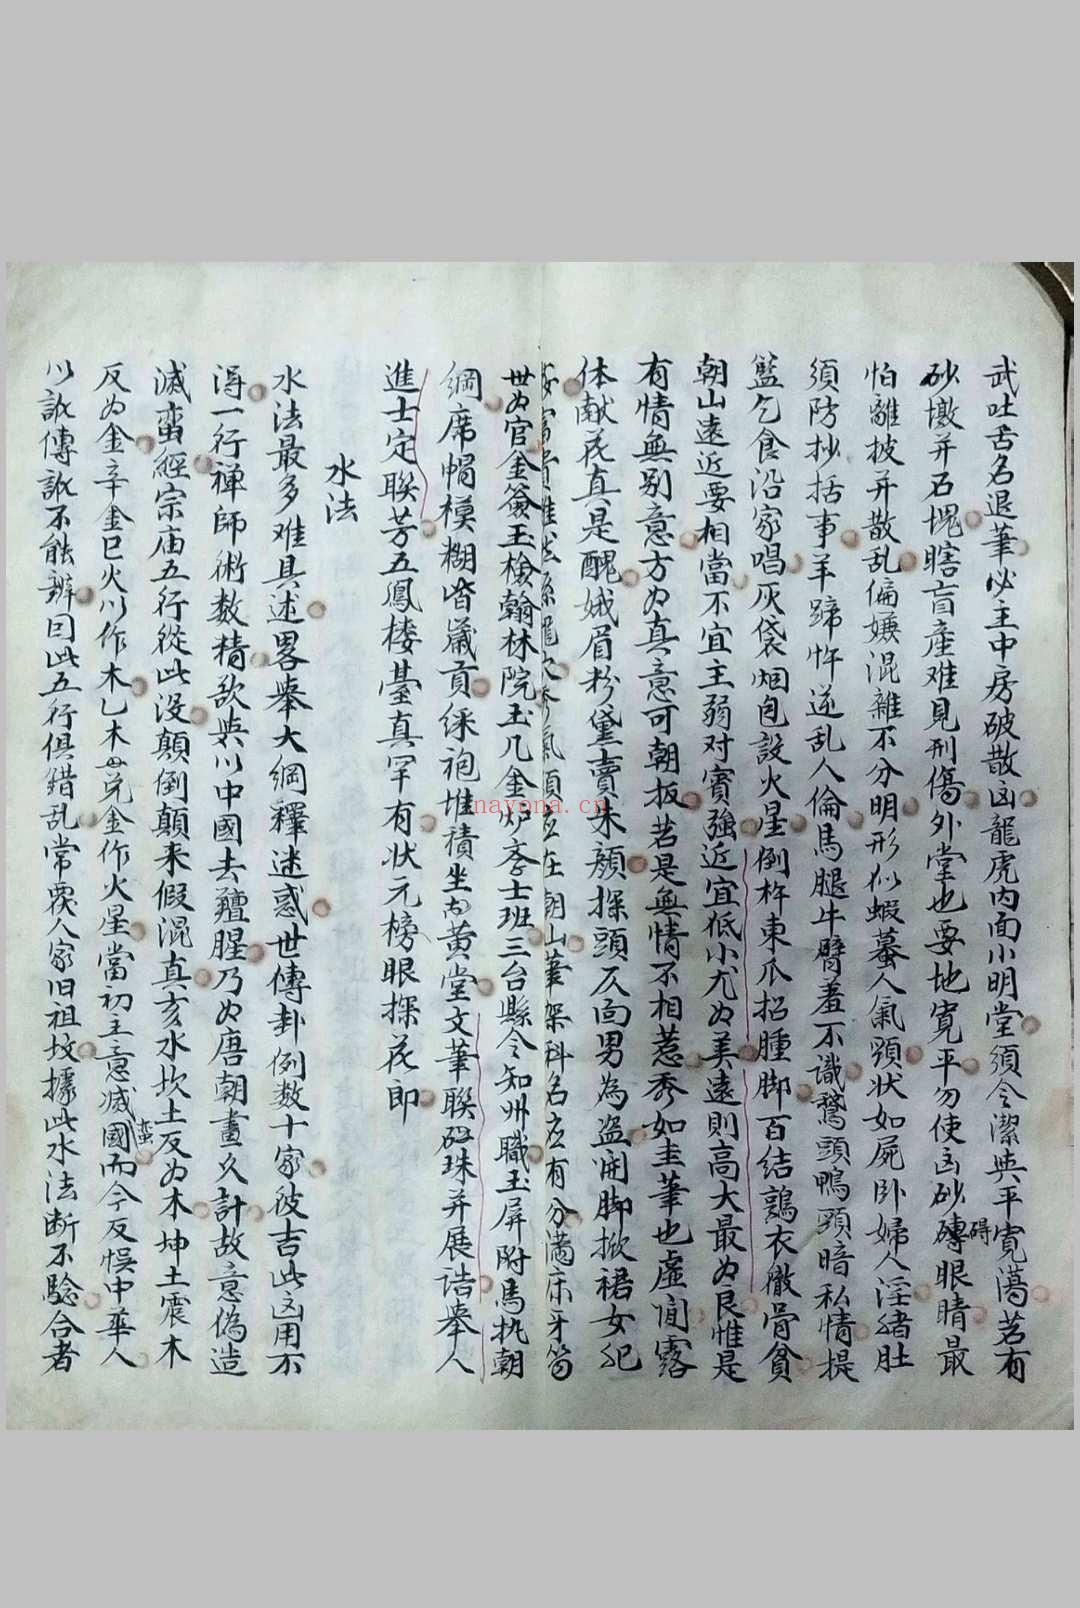 武吐舌名退筆必主中房破散凶龍虎内面小明堂須令潔與平寬蕩若有
砂墩并石塊瞎盲產难見刑傷外堂也要地寬平勿使凶砂磚碍眼睛最
怕離披并散乱偏嫌混雜不分明形似蝦蟇人氣顎状如屍卧婦人淫緒肚
須防抄括事羊蹄忤逆乱人倫馬腿牛臂羞不識鵞頭鴨頸暗私情提
籃乞食沿家唱灰袋烟包設火星倒杵東瓜招腫脚百结鶉衣徹骨貧
朝山遠近要相當不宜主弱对賓強近宜低小尤为美遠則高大最为良惟是
有情無别意方为真意可朝扳若是無情不相惹秀如圭筆也虛间露
体献花真是醜娥眉粉黛賣朱顏探頭仄面男為盗開脚掀裙女犯
朝山筆架科名应有分满床牙笏
世为官金簽玉檢翰林院玉几金炉李士班三台縣令知州職玉屏附馬执朝
綱席帽模糊皆嵗貢綵袍堆積坐黄堂文筆聯珠并展诰舉人
進士定聯芳五鳳楼臺真罕有状元榜眼探花郎
水法
水法最多难具述畧舉大綱釋迷惑世傳卦例数十家彼吉此凶用不
淂一行禅師術数精欲與川中國去羶腥乃为唐朝畫久計故意偽造
滅蛮經宗庙五行從此没顛倒顛来假混真亥水坎土反为木坤土震木
反为金辛金巳火川作木乙木丑兑金作火星當初主意滅蛮國而今反悞中華人
以訛傳訛不能辨曰此五行俱錯乱常覆人家旧祖坟據此水法断不驗合者
nayona.cn